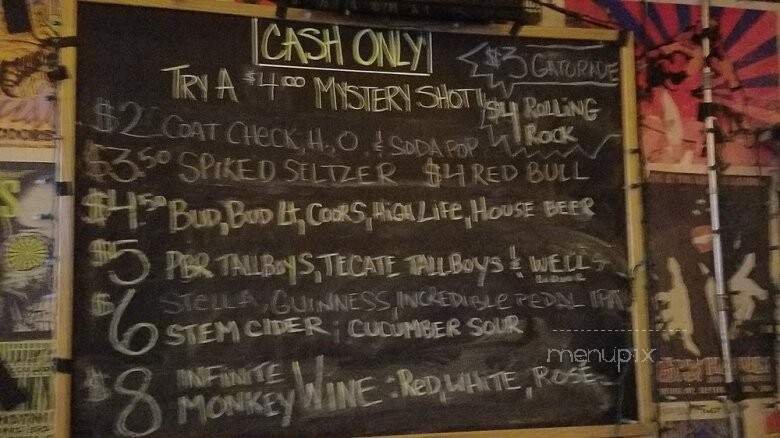 CASH ONLY
$3 GATORADE
TRY A $4.00 MYSTERY SHOT!!
$4 ROLLING
ROCK
$2 COAT CHECK, H2O, & SODA POP
$3.50 SPIKED SELTZER $4 RED BULL
$4.50 BUD, BUD LT, COORS, HIGH LIFE, HOUSE BEER
$5 PBR TALLBOYS, TECATE TALLBOYS & WELLS
$6 STELLA, GUINNESS, INCREDIBLE PEDAL IPA
STEM CIDER; CUCUMBER SOUR
menupix
$8 INFINITE
MONKEY WINE: RED, WHITE, ROSÉ